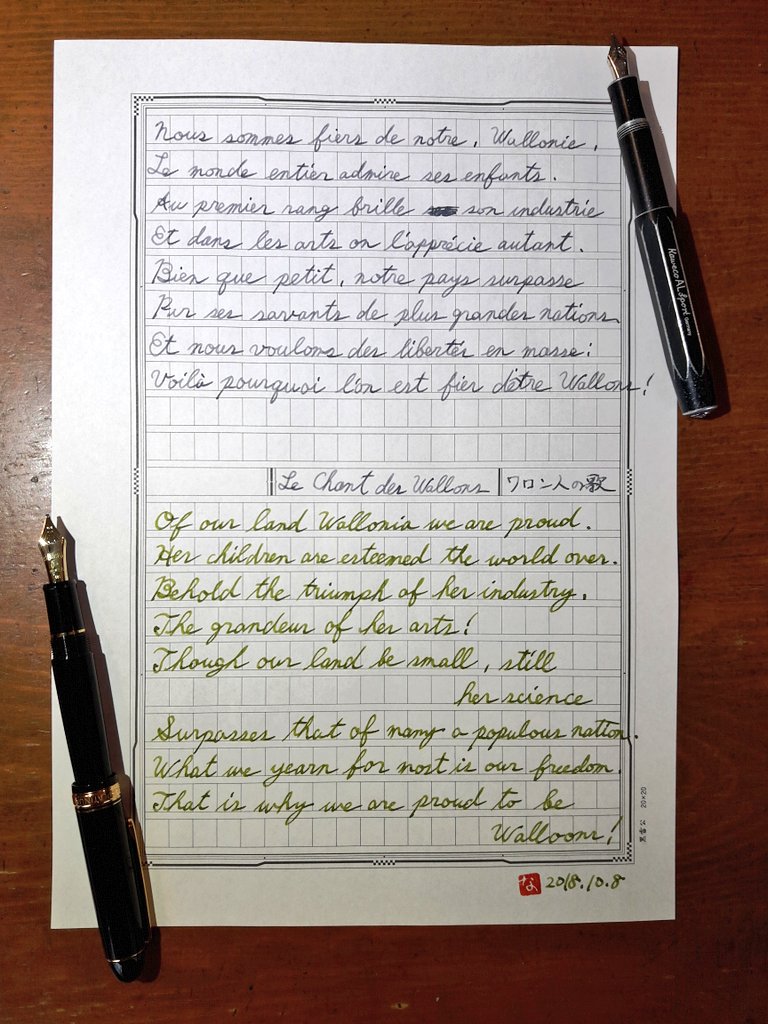 Nous sommes fiers de notre, Wallonie,
Le monde entier admire ses enfants.
Au premier rang brille son industrie
Et dans les arts on l'apprécie autant.
Bien que petit, notre pays surpasse
Par ses savants de plus grandes nations.
Et nous voulons des libertés en masse:
Voilà pourquoi l'on est fier d'être Wallons!
Le Chant des Wallons ワロン人の歌
Of our land Wallonia we are proud.
Her children are esteemed the world over.
Behold the triumph of her industry,
The grandeur of her arts!
Though our land be small, still
her science
Surpasses that of many a populous nation.
What we yearn for most is our freedom.
That is why we are proud to be
Walloons!
な 2018.10.8
20×20
Kaweco AL Sport Germany